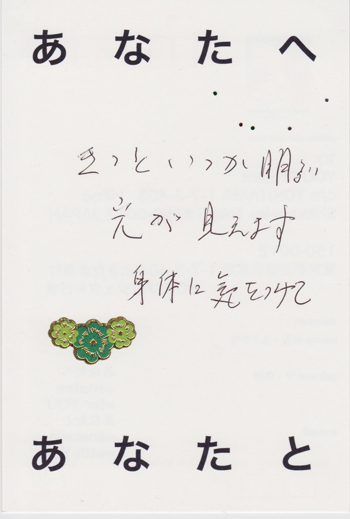 あなたへ
きっといつか明るい
光が見えます
身体に気をつけて
あなたと